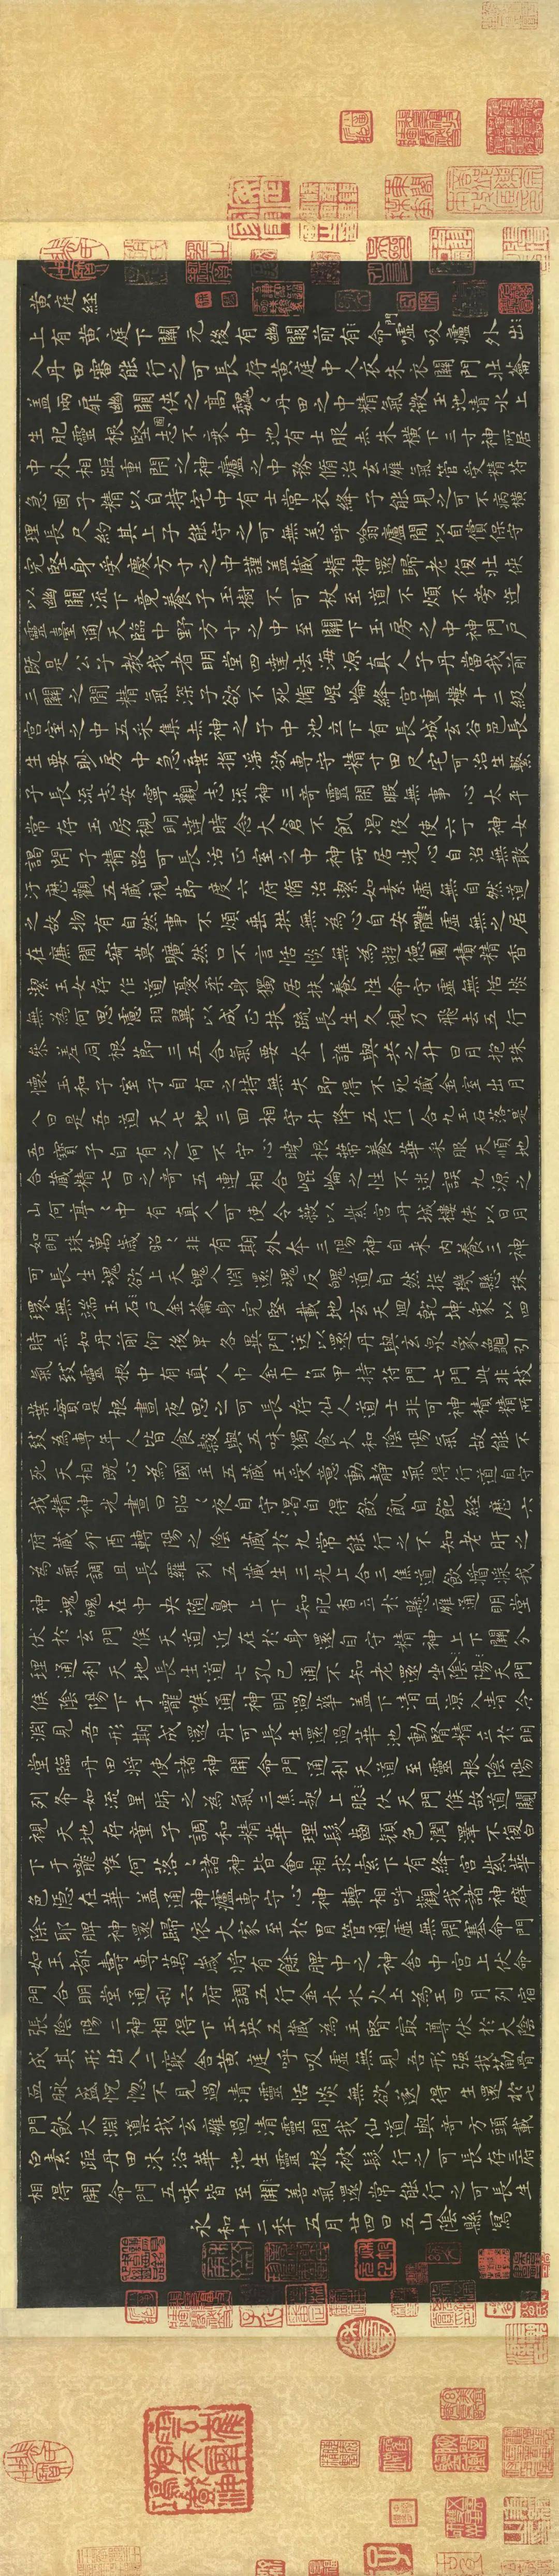 黄庭經
上有黄庭下關元後有幽闕前有命門噓吸廬外出
入丹田審能行之可長存黄庭中人衣朱衣關門壯籥
盖兩扉幽闕俠之高魏〻丹田之中精氣微玉池清水上
生肥靈根堅志不衰中池有士服赤朱橫下三寸神所居
中外相距重閉之神廬之中務脩治玄癕氣管受精符
急固子精以自持宅中有士常衣絳子能見之可不病橫
理長尺約其上子能守之可無恙呼翕廬間以自償保守
完堅身受慶方寸之中謹盖藏精神還歸老復壯俠
以幽闕流下竟養子玉樹不可杖至道不煩不旁迕
靈臺通天臨中野方寸之中至關下玉房之中神門戶
既是公子教我者明堂四達法海源真人子丹當我前
三關之間精氣深子欲不死脩崐崘絳宮重樓十二級
宮室之中五采集赤神之子中池立下有長城玄谷邑長
生要眇房中急棄捐淫欲專守精寸田尺宅可治生繫
子長流志安寧觀志流神三奇靈閒暇無事心太平
常存玉房視明達時念大倉不飢渴役使六丁神女
謁閉子精路可長活正室之中神所居洗心自治無敢
汙歷觀五藏視節度六府脩治潔如素虛無自然道
之故物有自然事不煩垂拱無為心自安體虛無之居
在廉間寂莫曠然口不言恬惔無為遊德園積精香
潔玉女存作道憂柔身獨居扶養性命守虛無恬惔
無為何思慮羽翼以成正扶疏長生久視乃飛去五行
參差同根節三五合氣要本一誰與共之升日月抱珠
懷玉和子室子自有之持無失即得不死藏金室出月
入日是吾道天七地三回相守升降五行一合九玉石落是
吾寶子自有之何不守心曉根蒂養華采服天順地
合藏精七日之奇五連相合崐崘之性不迷誤九源之
山何亭〻中有真人可使令蔽以紫宮丹城樓俠以日月
如明珠萬歲昭〻非有期外本三陽神自來內養三神
可長生魂欲上天魄入淵還魂反魄道自然旋璣懸珠
環無端玉石戶金籥身完堅載地玄天迴乾坤象以四
時赤如丹前仰後卑各異門送以還丹與玄泉象龜引
氣致靈根中有真人巾金巾負甲持符開七門此非枝
葉實是根晝夜思之可長存仙人道士非可神積精所
致為專年人皆食穀與五味獨食大和陰陽氣故能不
死天相既心為國主五藏王受意動靜氣得行道自守
我精神光晝日昭〻夜自守渴自得飲飢自飽經歷六
府藏卯酉轉陽之陰藏於九常能行之不知老肝之
為氣調且長羅列五藏生三光上合三焦道飲醬漿我
神魂魄在中央隨鼻上下知肥香立於懸癕通明堂
伏於玄門候天道近在於身還自守精神上下關分
理通利天地長生道七孔已通不知老還坐陰陽天門
候陰陽下于嚨喉通神明過華盖下清且涼入清泠
淵見吾形期成還丹可長生還過華池動腎精立於明
堂臨丹田將使諸神開命門通利天道至靈根陰陽
列布如流星肺之為氣三焦起上服伏天門候故道闚
視天地存童子調和精華理髮齒顏色潤澤不復白
下于嚨喉何落〻諸神皆會相求索下有絳宮紫華
色隱在華盖通神廬專守心神轉相呼觀我諸神辟
除耶脾神還歸依大家至於胃管通虛無閉塞命門
如玉都壽專萬歲將有餘脾中之神舍中宮上伏命
門合明堂通利六府調五行金木水火土為王日月列宿
張陰陽二神相得下玉英五藏為主腎最尊伏於大陰
成其形出入二竅舍黄庭呼吸虛無見吾形强我筋骨
血脉盛怳惚不見過清靈恬惔無欲遂得生還於七
門飲大淵導我玄癕過清靈問我仙道與奇方頭載
白素距丹田沐浴華池生靈根被髮行之可長存三府
相得開命門五味皆至開善氣還常能行之可長生
永和十二年五月廿四日五山陰縣寫